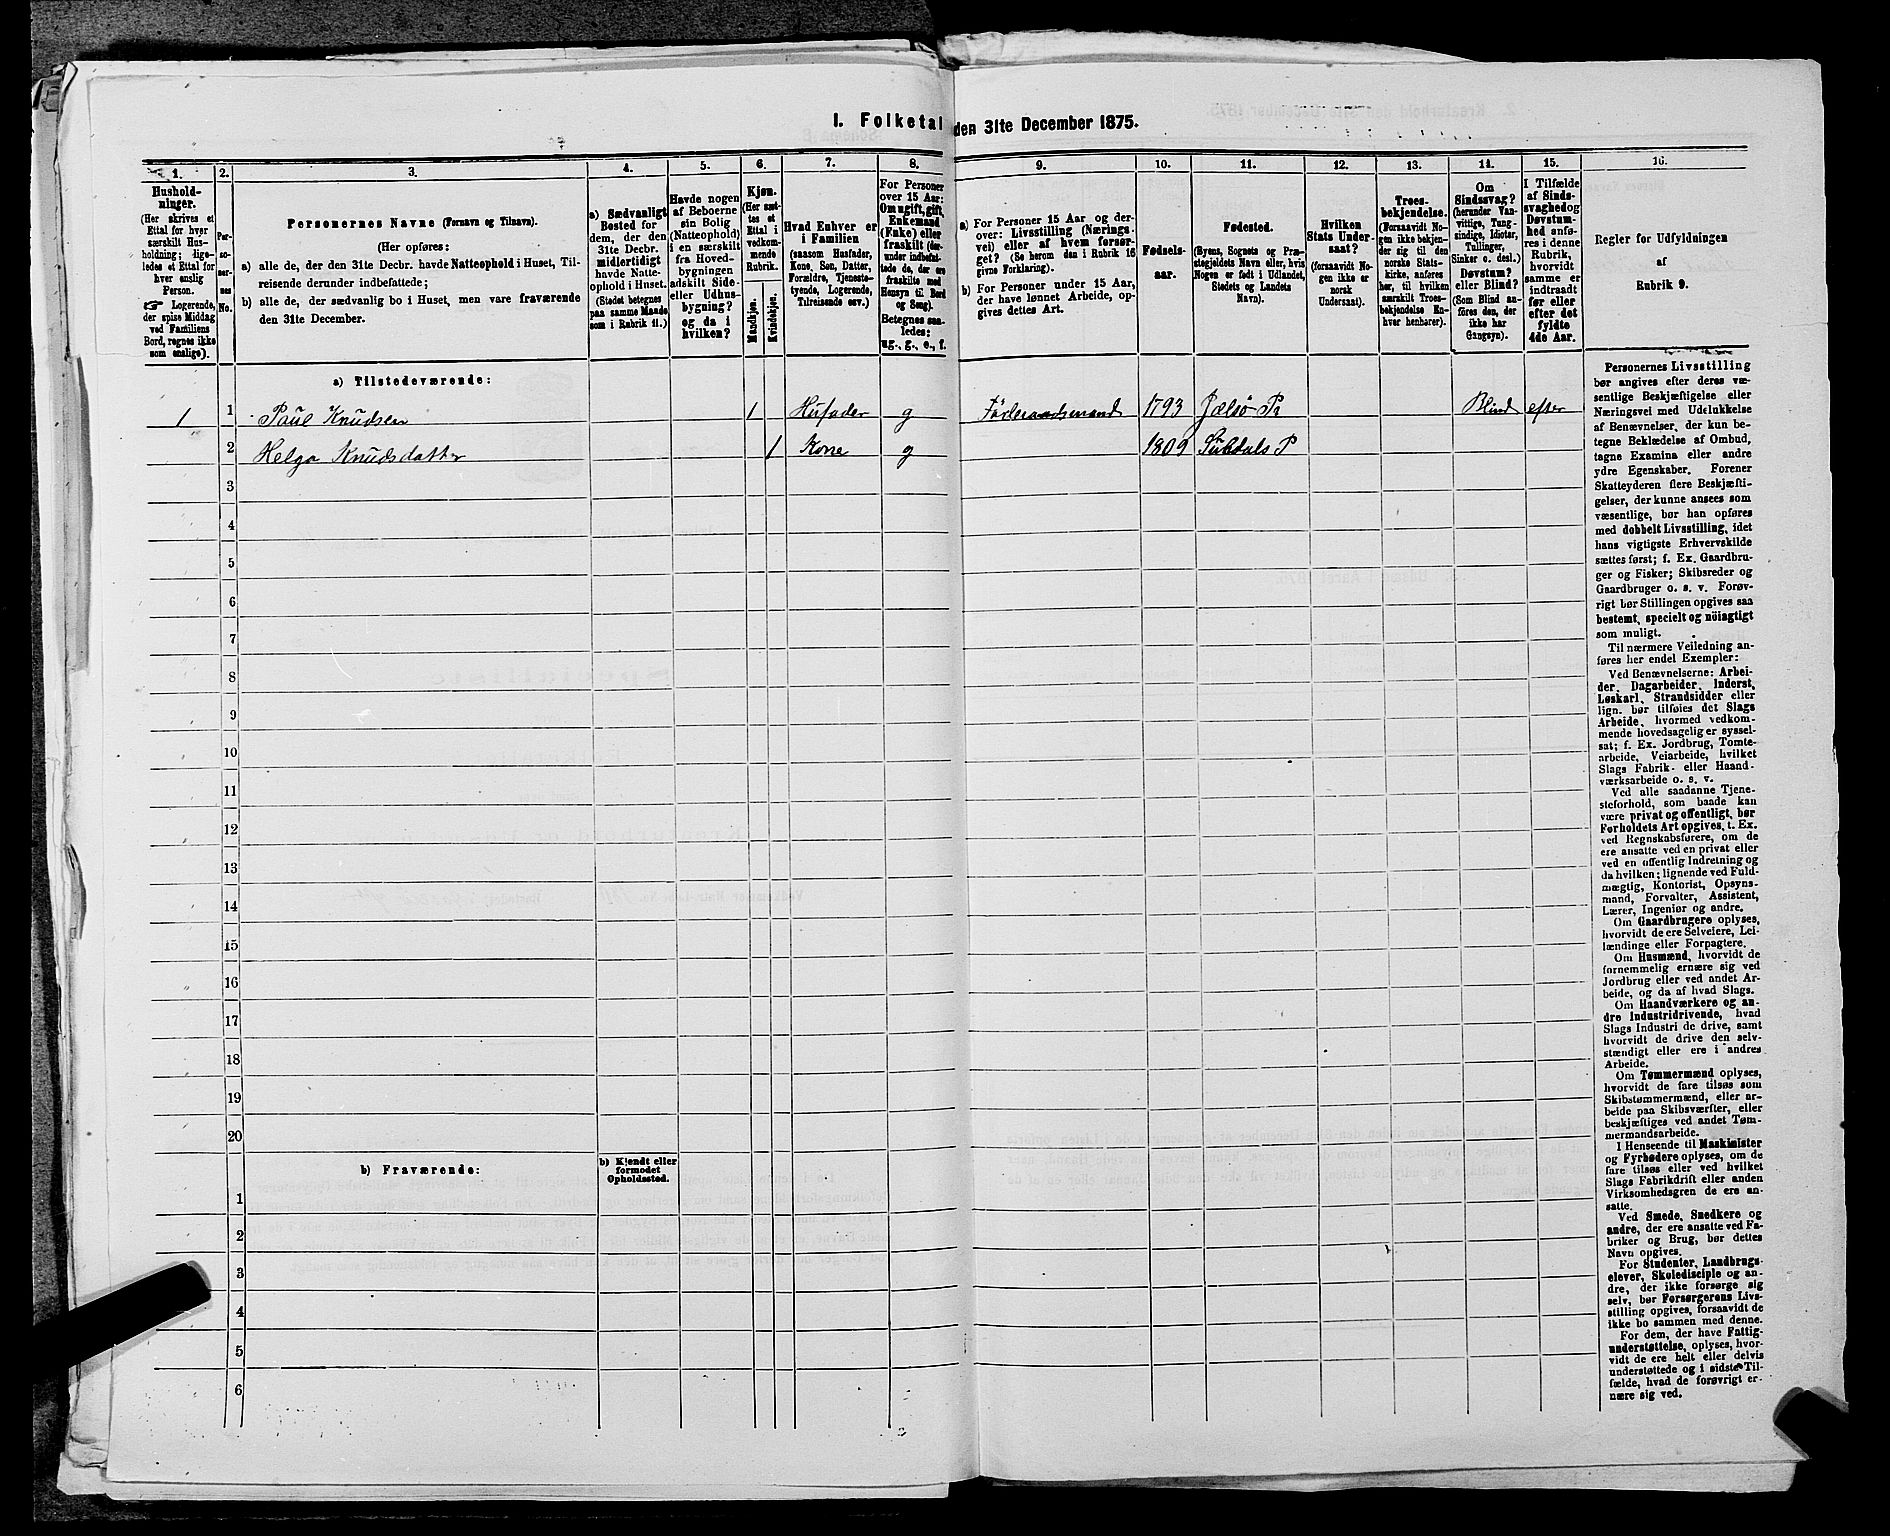 I. Folketal den 31te December 1875.
1. 2. 3. 4. 5. 6. 7. 8. 9. 10. 11. 12. 13. 14. 15. 16.
Hushold-
ninger.
(Her skrives et
Ettal for hver
særskilt Hus-
holdning; lige-
ledes et Ettal for
hver enslig
Person.
☞ Logerende,
der spise Middag
ved Familiens
Bord, regnes ikke
som enslige).
Per-
so-
ner-
nes
No.
Personernes Navne (Fornavn og Tilnavn).
(Her opføres:
a) alle de, der den 31te Decbr. havde Natteophold i Huset, Til-
reisende derunder indbefattede;
b) alle de, der sædvanlig bo i Huset, men vare fraværende
den 31te December.
a) Sædvanligt
Bosted for
dem, der den
31te Decbr.
midlertidigt
havde Natte-
ophold i Huset.
(Stedet betegnes
paa samme Maade
som i Rubrik 11.)
Havde nogen
af Beboerne
sin Bolig
(Natteophold)
i en særskilt
fra Hoved-
bygningen
adskilt Side-
eller Udhus-
bygning?
og da i
hvilken?
Kjøn.
(Her sæt-
tes et
Ettal i
vedkom-
mende
Rubrik.
Mandkjøn.
Kvindekjøn.
Hvad Enhver er
i Familien
(saasom Husfader,
Kone, Søn, Datter,
Forældre, Tjeneste-
tyende, Logerende,
Tilreisende osv.)
For Personer
over 15 Aar:
Om ugift, gift,
Enkemand
(Enke) eller
fraskilt (der-
under indbefat-
tede de, der ere
fraskilte med
Hensyn til Bord
og Seng).
Betegnes saa-
ledes:
ug., g., e., f.
a) For Personer 15 Aar og der-
over: Livsstilling (Nærings-
vei) eller af hvem forsør-
get? (Se herom den i Rubrik 16
givne Forklaring).
b) For Personer under 15 Aar,
der have lønnet Arbeide, op-
gives dettes Art.
Fødsels-
aar.
Fødested.
(Byens, Sognets og Præ-
stegjeldets Navn eller, hvis
Nogen er født i Udlandet,
Stedets og Landets
Navn).
Hvilken
Stats Under-
saat?
(forsaavidt No-
gen ikke er
norsk
Undersaat).
Troes-
bekjendelse.
(Forsaavidt No-
gen ikke bekjen-
der sig til den
norske Stats-
kirke, anføres
her, til hvilken
særskilt Troes-
bekjendelse En-
hver henhører).
Om
Sindssvag?
(herunder Van-
vittige, Tung-
sindige, Idioter,
Tullinger,
Sinker o. desl.)
Døvstum?
eller Blind?
(Som Blind an-
føres den, der
ikke har
Gangsyn).
I Tilfælde
af Sinds-
svaghed og
Døvstum-
hed anfø-
res i denne
Rubrik,
hvorvidt
samme er
indtraadt
før eller
efter det
fyldte
4de Aar.
Regler for Udfyldningen
af
Rubrik 9.
a) Tilstedeværende:
1 1 Paul Knudsen 1 Husfader g Føderaadsmand 1793 Jælsø P Blind efter
2 Helga Knudsdatter 1 Kone g 1809 Suldals P
3
4
5
6
7
8
9
10
11
12
13
14
15
16
17
18
19
20
b) Fraværende:
b) Kjendt eller
formodet
Opholdssted.
1
2
3
4
5
6
Personernes Livsstilling
bør angives efter deres væ-
sentlige Beskjæftigelse eller
Næringsvei med Udelukkelse
af Benævnelser, der kun be-
tegne Beklædelse af Ombud,
tagne Examina eller andre
ydre Egenskaber. Forener
Skatteyderen flere Beskjæfti-
gelser, der kunne ansees som
væsentlige, bør han opføres
med dobbelt Livsstilling, idet
hans vigtigste Erhvervskilde
sættes først; f. Ex. Gaardbru-
ger og Fisker; Skibsreder og
Gaardbruger o. s. v. Forøv-
rigt bør Stillingen opgives saa
bestemt, specielt og nöiagtigt
som muligt.
Til nærmere Veiledning an-
føres her endel Exempler:
Ved Benævnelserne: Arbei-
der, Dagarbeider, Inderst,
Løskarl, Strandsidder eller
lign. bør tilføies det Slags
Arbeide, hvormed vedkom-
mende hovedsagelig er syssel-
sat; f. Ex. Jordbrug, Tomte-
arbeide, Veiarbeide, hvilket
Slags Fabrik- eller Haand-
værksarbeide o. s. v.
Ved alle saadanne Tjene-
steforhold, som baade kan
være privat og offentligt, bør
Forholdets Art opgives, t. Ex.
ved Regnskabsførere, om de
ere ansatte ved en privat eller
ved en offentlig Indretning og
da hvilken; lignende ved Fuld-
mægtig, Kontorist, Opsyns-
mand, Forvalter, Assistent,
Lærer, Ingeniør og andre.
Om Gaardbrugere oplyses,
hvorvidt de ere Selveiere, Lei-
lændinge eller Forpagtere.
Om Husmænd, hvorvidt de
fornemmelig ernære sig ved
Jordbrug eller ved andet Ar-
beide, og da af hvad Slags.
Om Haandværkere og an-
dre Industridrivende, hvad
Slags Industri de drive, samt
hvorvidt de drive den selv-
stændigt eller ere i andres
Arbeide.
Om Tømmermænd oplyses,
hvorvidt de fare tilsøs som
Skibstømmermænd, eller ar-
beide paa Skibsværfter, eller
beskjæftiges ved andet Tøm-
mermandsarbeide.
I Henseende til Maskinister
og Fyrbødere oplyses, om de
fare tilsøs eller ved hvilket
Slags Fabrikdrift eller anden
Virksomhedsgren de ere an-
satte.
Ved Smede, Snedkere og
andre, der ere ansatte ved Fa-
briker og Brug, bør dettes
Navn opgives.
For Studenter, Landbrugs-
elever, Skoledisciple og an-
dre, der ikke forsørge sig
selv, bør Forsørgerens Livs-
stilling opgives, forsaavidt de
ikke bo sammen med denne.
For dem, der have Fattig-
understøttelse, oplyses, hvor-
vidt de ere helt eller delvis
understøttede og i sidste Til-
fælde, hvad de forøvrigt er-
nære sig ved.